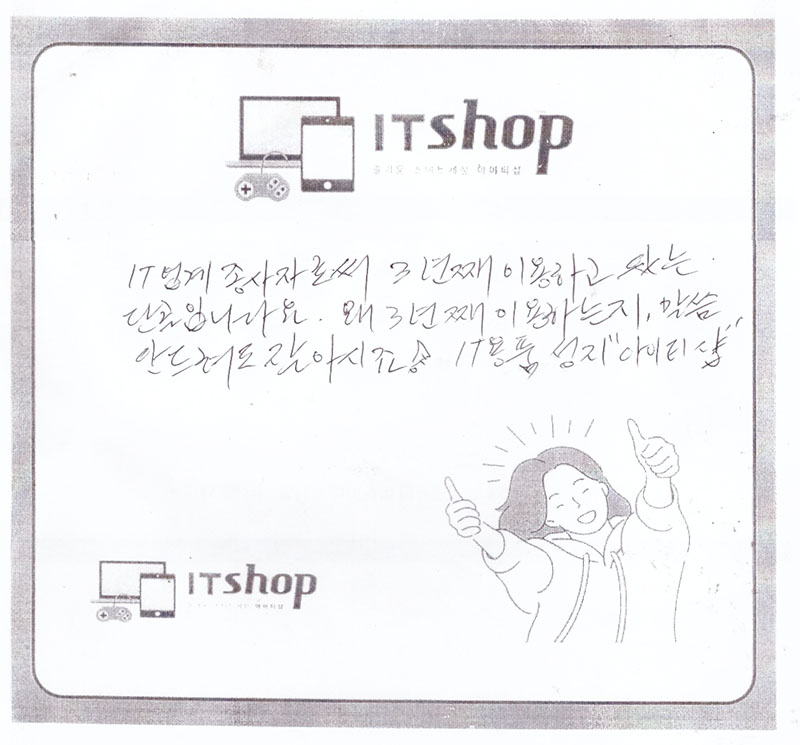 ITshop
즐거운 스마트세상 아이티샵
IT업계 종사자로써 3년째 이용하고 있는
단골입니다요. 왜 3년째 이용하는지, 말씀
안드려도 잘아시죠? IT용품 성지"아이티샵"
ITshop
아이티샵